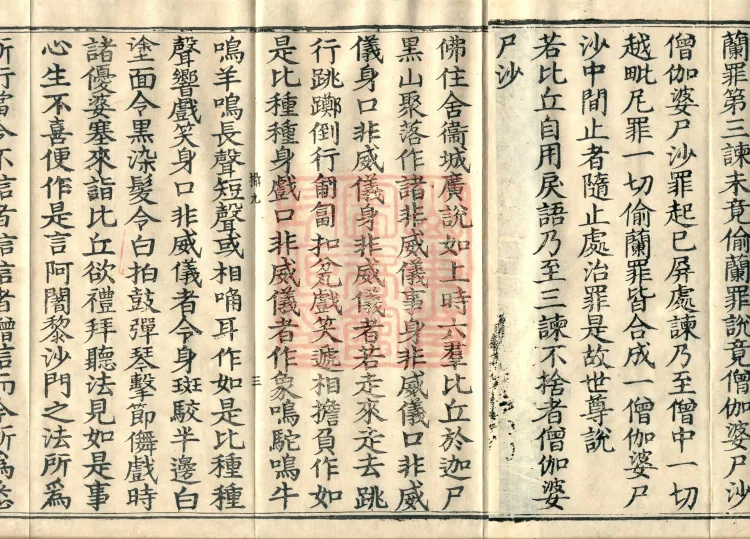 蘭罪第三諫未竟偷蘭罪說竟僧伽婆尸沙
僧伽婆尸沙罪起已屏處諫乃至僧中一切
越毗尼罪一切偷蘭罪皆合成一僧伽婆尸
沙中間止者隨止處治罪是故世尊說
若比丘自用戾語乃至三諫不捨者僧伽婆
尸沙
佛住舍衞城廣說如上時六羣比丘於迦尸
黑山聚落作諸非威儀事身非威儀口非威
儀身口非威儀身非威儀者若走來走去跳
行跳躑倒行匍匐扣瓫戲笑遞相擔負作如
是比種種身戲口非威儀者作象鳴駝鳴牛
三
鳴羊鳴長聲短聲或相耳作如是比種種
聲響戲笑身口非威儀者令身斑駮半邊白
塗面令黑染髮令白拍鼓彈琴擊節儛戲時
諸優婆塞來詣比丘欲禮拜聽法見如是事
心生不喜便作是言阿闍黎沙門之法所爲
所行當令不信者信信者增信而今所爲悉